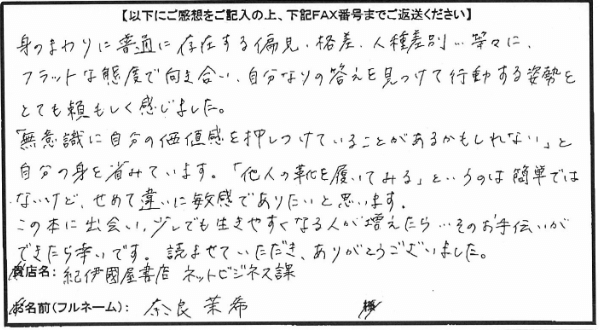 【以下にご感想をご記入の上、下記FAX番号までご返送ください】
身のまわりに普通に存在する偏見・格差・人種差別…等々に、
フラットな態度で向き合い、自分なりの答えを見つけて行動する姿勢を
とても頼もしく感じました。
「無意識に自分の価値感を押しつけていることがあるかもしれない」と
自分の身を省みています。「他人の靴を履いてみる」というのは簡単では
ないけど、せめて違いに敏感でありたいと思います。
この本に出会い、少しでも生きやすくなる人が増えたら…そのお手伝いが
できたら幸いです。読ませていただき、ありがとうございました。
貴店名:紀伊國屋書店 ネットビジネス課
お名前(フルネーム): 奈良 茉希 様